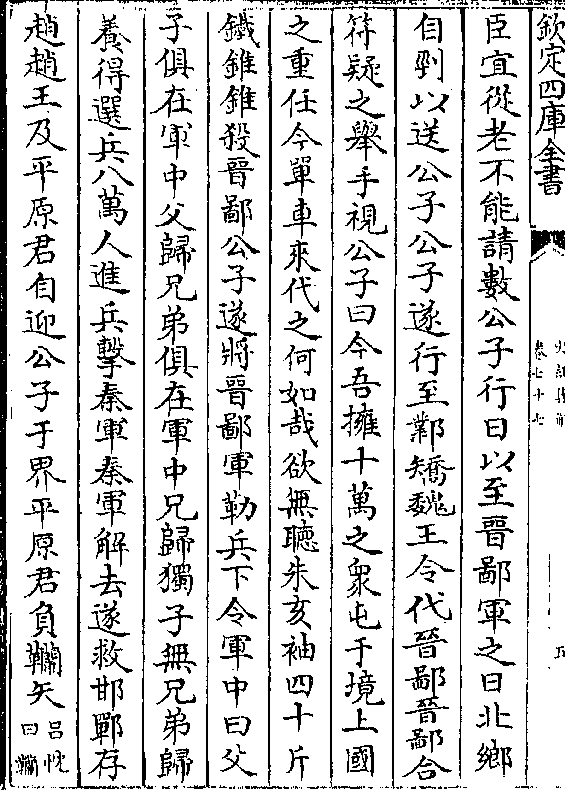 欽定四庫全書
卷七十七
臣宜從老不能請數公子行日以至晉鄙軍之日北鄉
自剄以送公子公子遂行至鄴矯魏王令代晉鄙晉鄙合
符疑之舉手視公子曰今吾擁十萬之衆屯于境上國
之重任今單車來代之何如哉欲無聽朱亥袖四十斤
鐵錐錐殺晉鄙公子遂將晉鄙軍勒兵下令軍中曰父
子俱在軍中父歸兄弟俱在軍中兄歸獨子無兄弟歸
養得選兵八萬人進兵擊秦軍秦軍解去遂救邯鄲存
趙趙王及平原君自迎公子于界平原君負韊矢
呂忱
曰韊